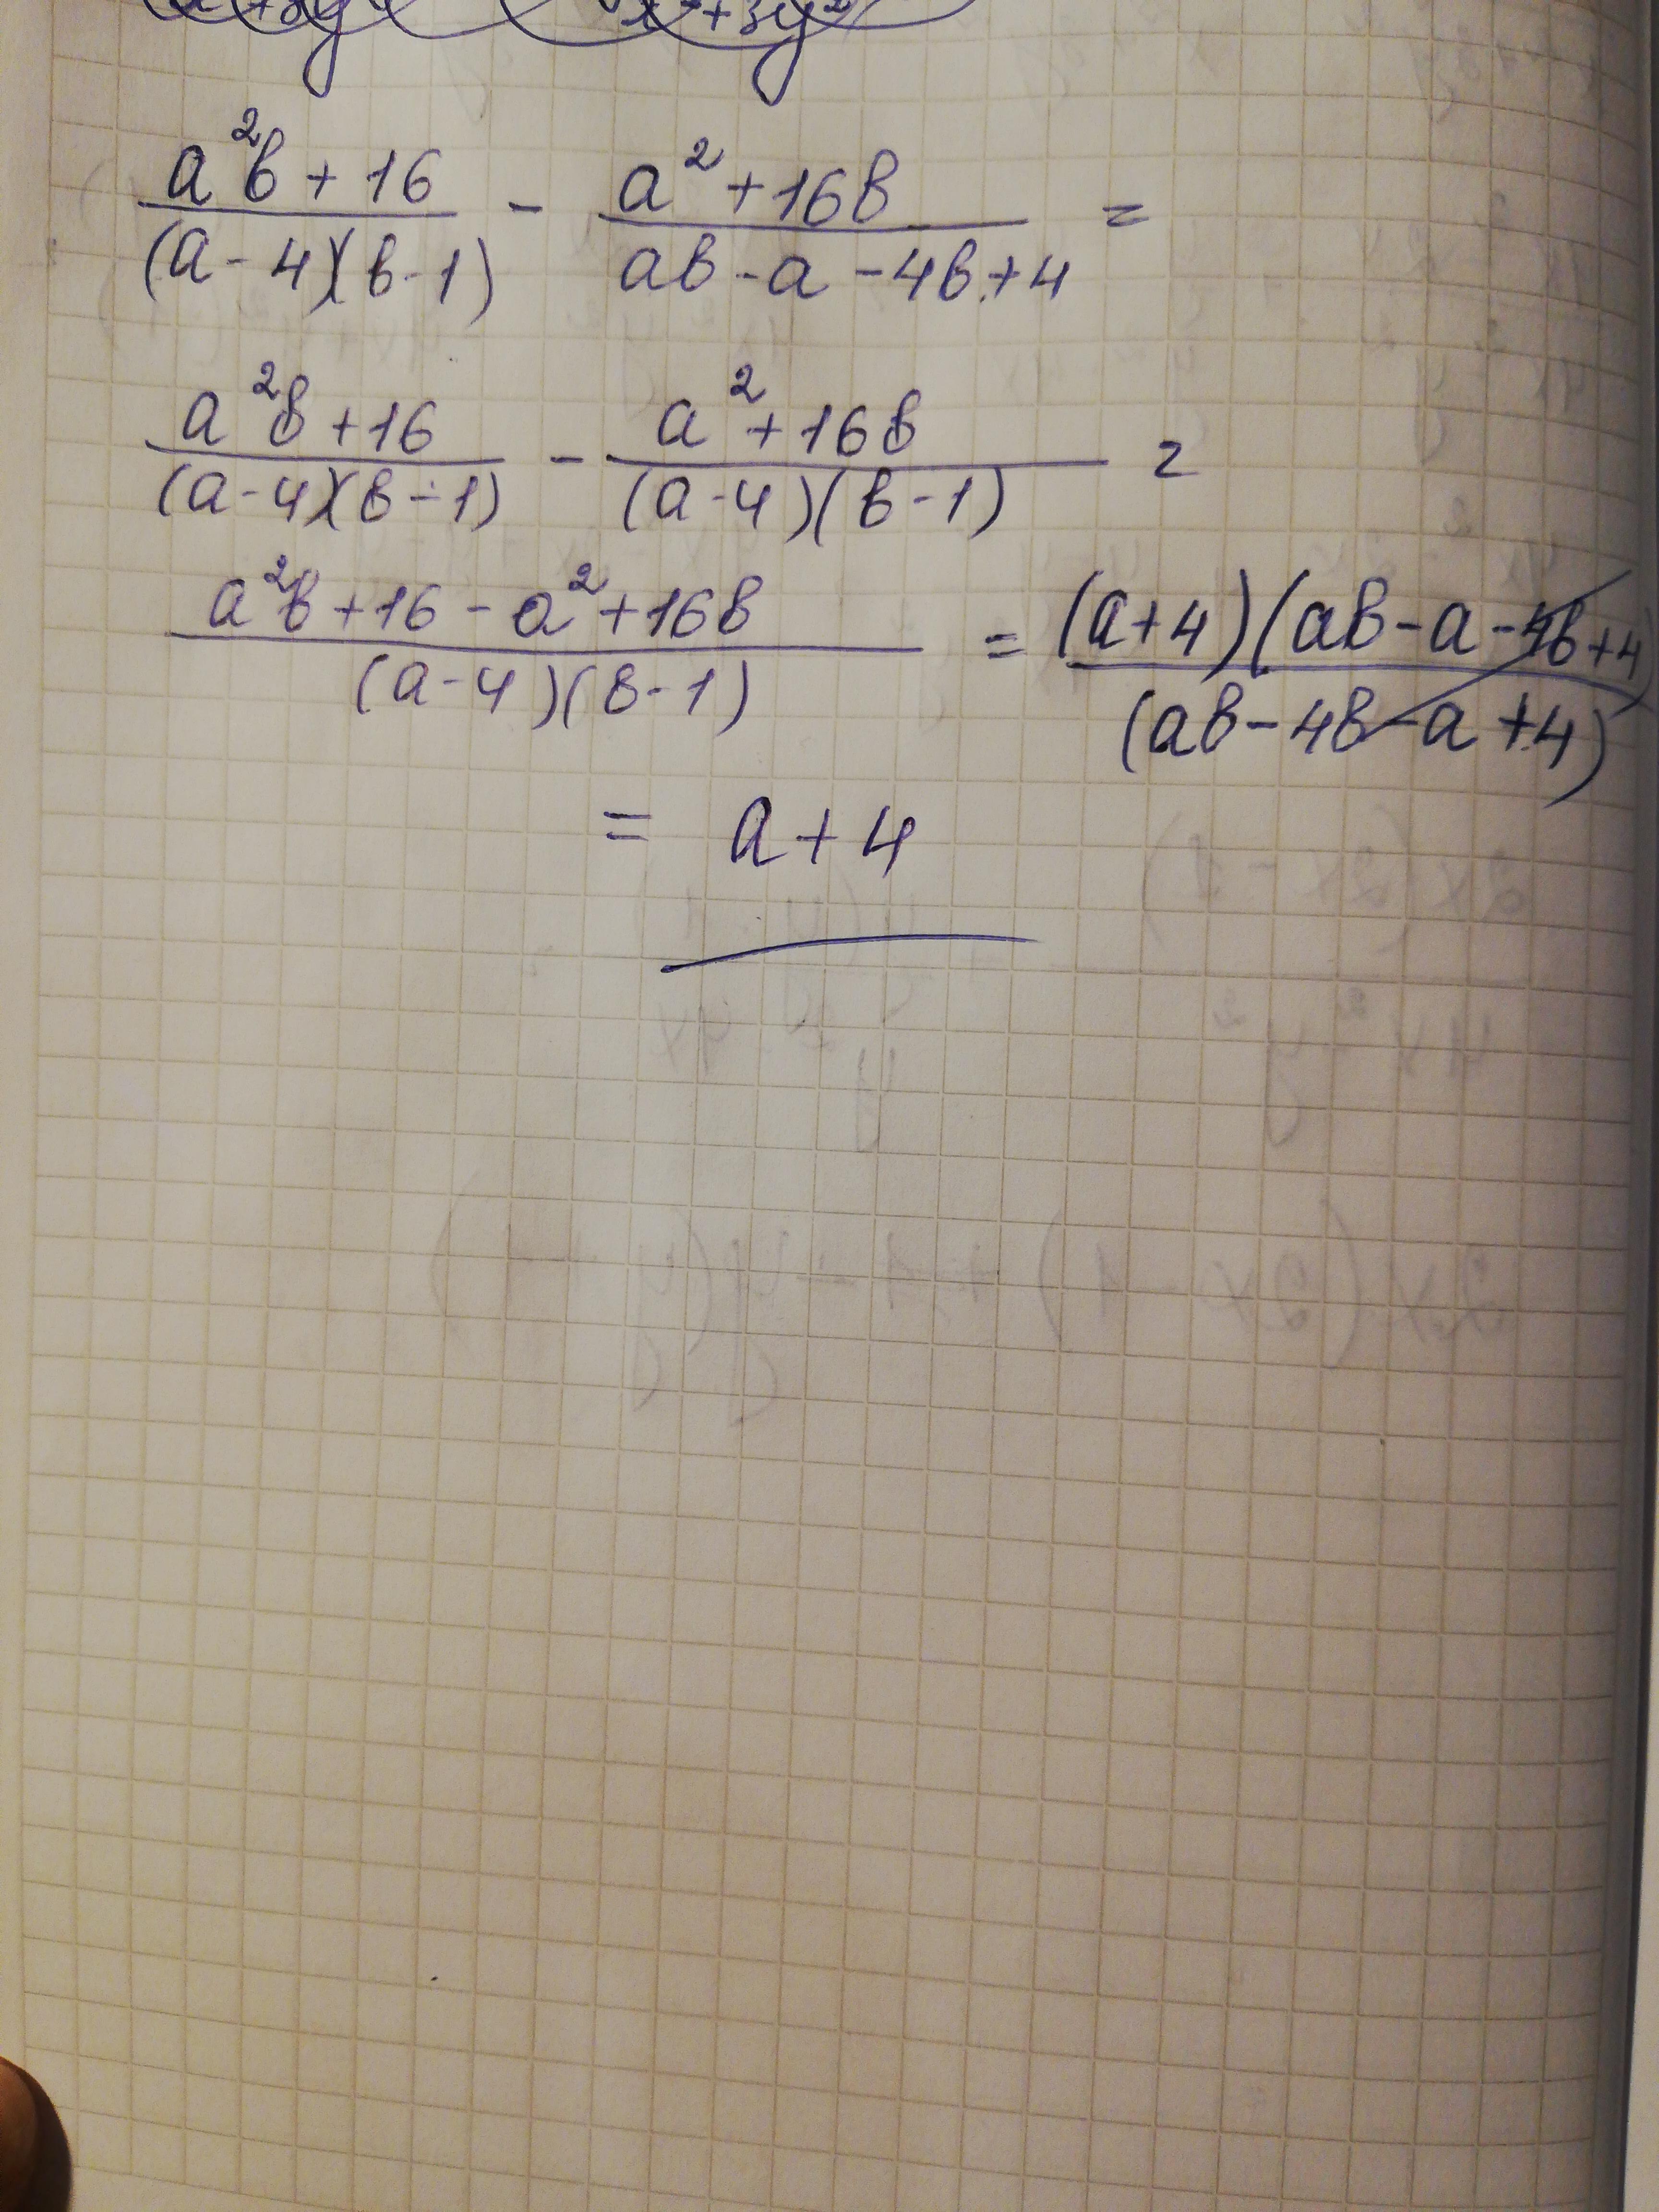 x²+3y²
a²b + 16 / (a - 4)(b - 1) - a² + 16b / ab - a - 4b + 4 =
a²b + 16 / (a - 4)(b - 1) - a² + 16b / (a - 4)(b - 1) =
a²b + 16 - a² + 16b / (a - 4)(b - 1) = (a + 4)(ab - a - 4b + 4) / (ab - 4b - a + 4)
= a + 4